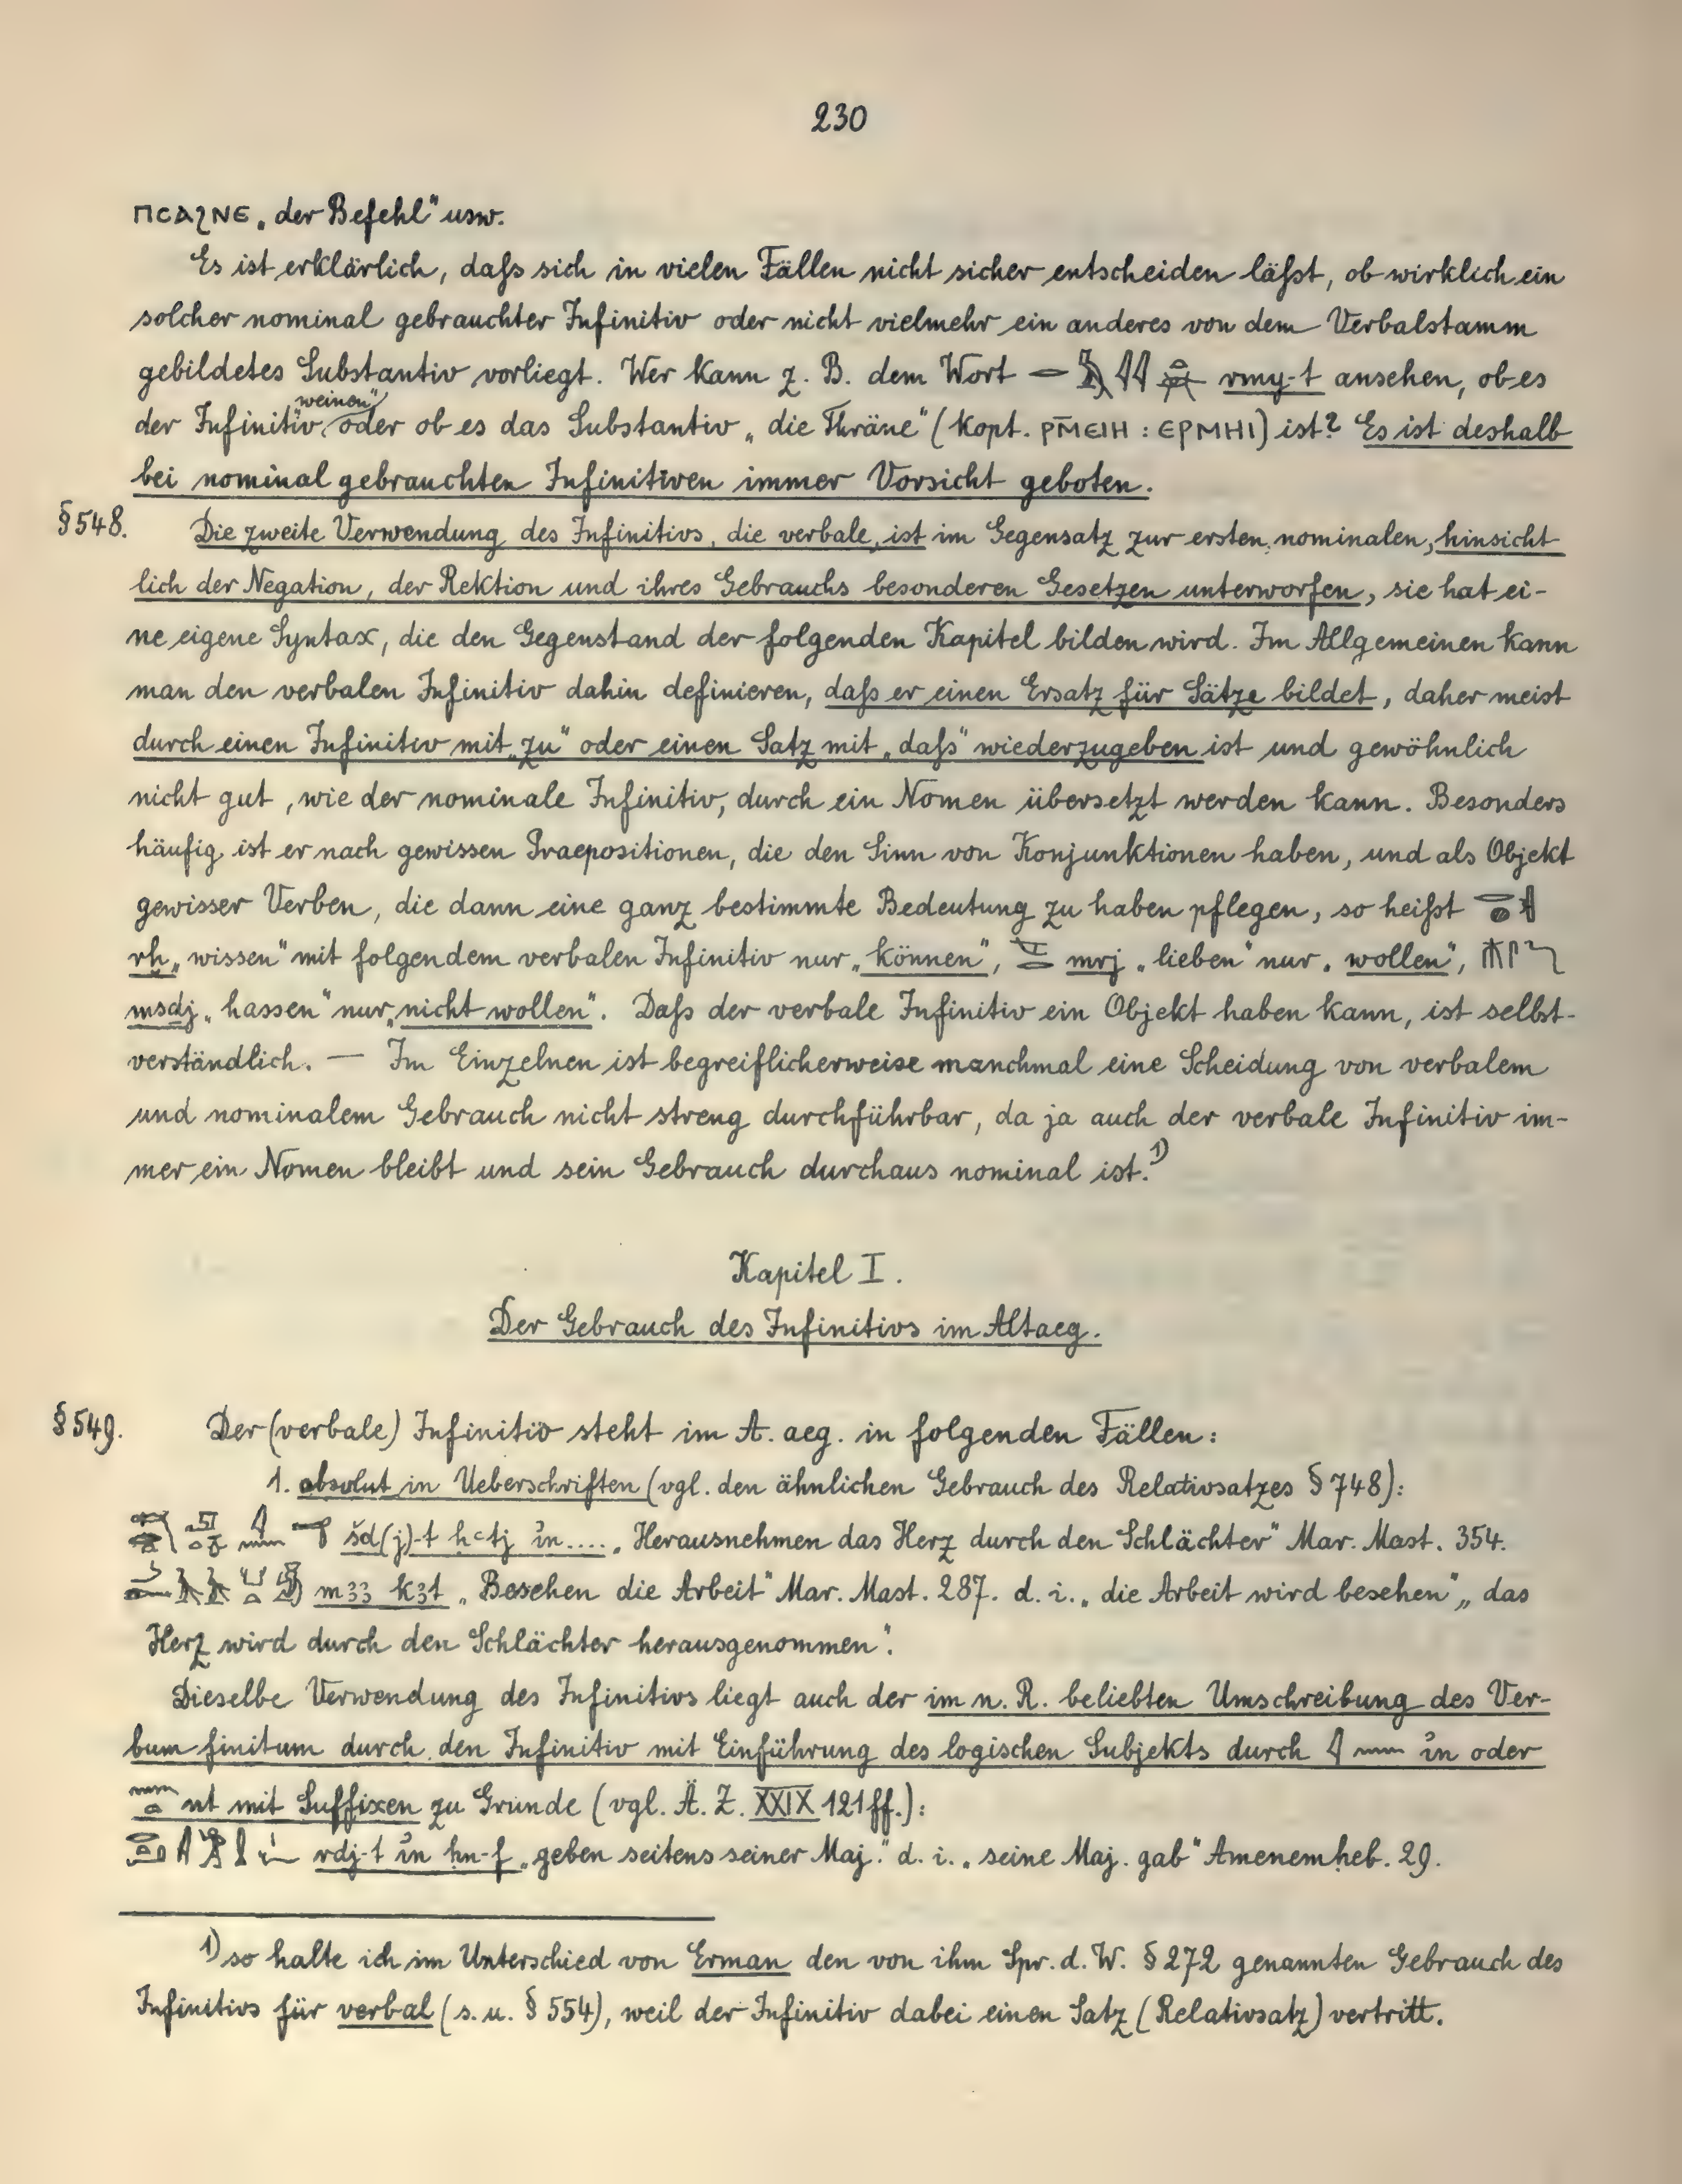 230
ⲡⲥⲁϩⲛⲉ „der Befehl" usw.
Es ist erklärlich, daſs sich in vielen Fällen nicht sicher entscheiden läſst, ob wirklich ein
solcher nominal gebrauchter Infinitiv oder nicht vielmehr ein anderes von dem Verbalstamm
gebildetes Substantiv vorliegt. Wer kann z. B. dem Wort rmy-t ansehen, ob es
der Infinitiv „weinen" oder ob es das Substantiv „die Thräne" (kopt. ⲣⲙ̄ⲉⲓⲏ : ⲉⲣⲙⲏⲓ) ist? Es ist deshalb
bei nominal gebrauchten Infinitiven immer Vorsicht geboten.
§548. Die zweite Verwendung des Infinitivs, die verbale, ist im Gegensatz zur ersten, nominalen, hinsicht
lich der Negation, der Rektion und ihres Gebrauchs besonderen Gesetzen unterworfen, sie hat ei-
ne eigene Syntax, die den Gegenstand der folgenden Kapitel bilden wird. Im Allgemeinen kann
man den verbalen Infinitiv dahin definieren, daſs er einen Ersatz für Sätze bildet, daher meist
durch einen Infinitiv mit „zu" oder einen Satz mit „daſs" wiederzugeben ist und gewöhnlich
nicht gut, wie der nominale Infinitiv, durch ein Nomen übersetzt werden kann. Besonders
häufig ist er nach gewissen Praepositionen, die den Sinn von Konjunktionen haben, und als Objekt
gewisser Verben, die dann eine ganz bestimmte Bedeutung zu haben pflegen, so heiſst
rḫ „wissen" mit folgendem verbalen Infinitiv nur „können", mrj „lieben" nur „wollen",
msdj „hassen" nur „nicht wollen". Daſs der verbale Infinitiv ein Objekt haben kann, ist selbst-
verständlich. — Im Einzelnen ist begreiflicherweise manchmal eine Scheidung von verbalem
und nominalem Gebrauch nicht streng durchführbar, da ja auch der verbale Infinitiv im-
mer ein Nomen bleibt und sein Gebrauch durchaus nominal ist.¹⁾
Kapitel I.
Der Gebrauch des Infinitivs im Altaeg.
§549. Der (verbale) Infinitiv steht im A. aeg. in folgenden Fällen:
1. absolut in Ueberschriften (vgl. den ähnlichen Gebrauch des Relativsatzes § 748):
šd(j)-t ḥꜥtj ꞽn.... „Herausnehmen das Herz durch den Schlächter" Mar. Mast. 354.
mꜣꜣ kꜣt „Besehen die Arbeit" Mar. Mast. 287. d. i. „die Arbeit wird besehen", „das
Herz wird durch den Schlächter herausgenommen".
Dieselbe Verwendung des Infinitivs liegt auch der im n. R. beliebten Umschreibung des Ver-
bum finitum durch den Infinitiv mit Einführung des logischen Subjekts durch 𓇋𓈖 ꞽn oder
𓈖𓏏 nt mit Suffixen zu Grunde (vgl. Ä. Z. XXIX 121 ff.):
rdj-t ꞽn ḥn-f „geben seitens seiner Maj." d. i. „seine Maj. gab" Amenemḥeb. 29.
¹⁾ so halte ich im Unterschied von Erman den von ihm Spr. d. W. § 272 genannten Gebrauch des
Infinitivs für verbal (s. u. § 554), weil der Infinitiv dabei einen Satz (Relativsatz) vertritt.